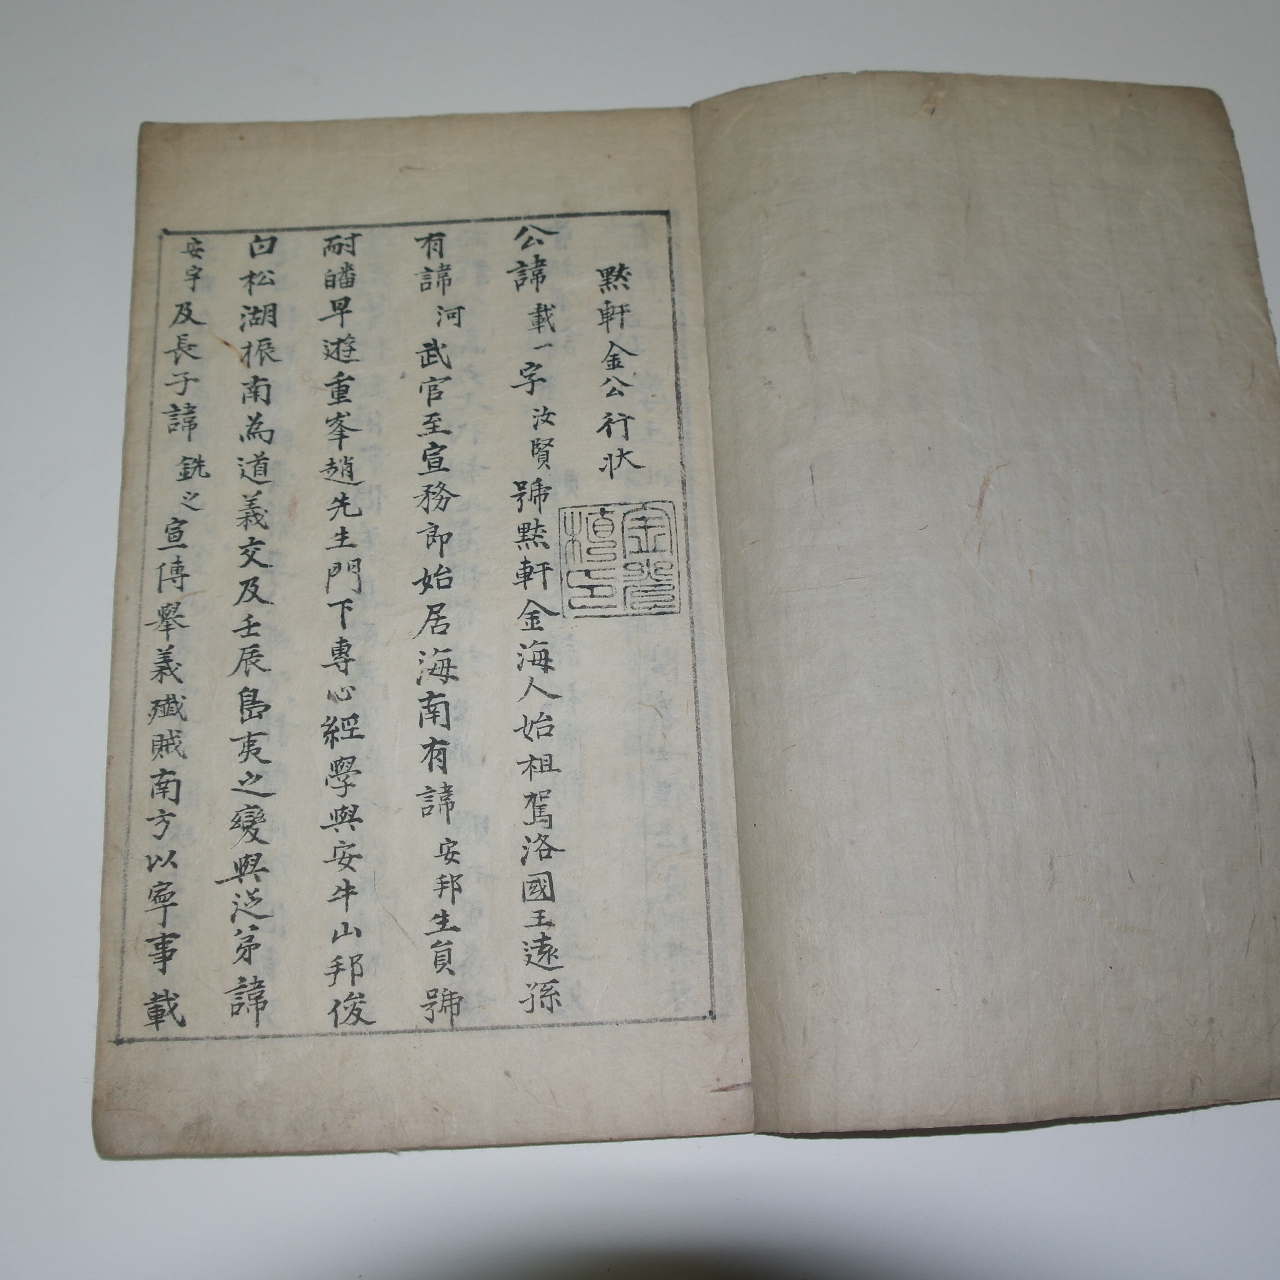 黙軒金公行狀
公諱載一字汝賢號黙軒金海人始祖駕洛國王遠孫
有諱河武官至宣務郎始居海南有諱安邦生員號
耐皤早遊重峯趙先生門下專心經學與安牛山邦俊
白松湖振南為道義交及壬辰島夷之變與從弟諱
安宇及長子諱銑之宣傳擧義殲賊南方以寧事載